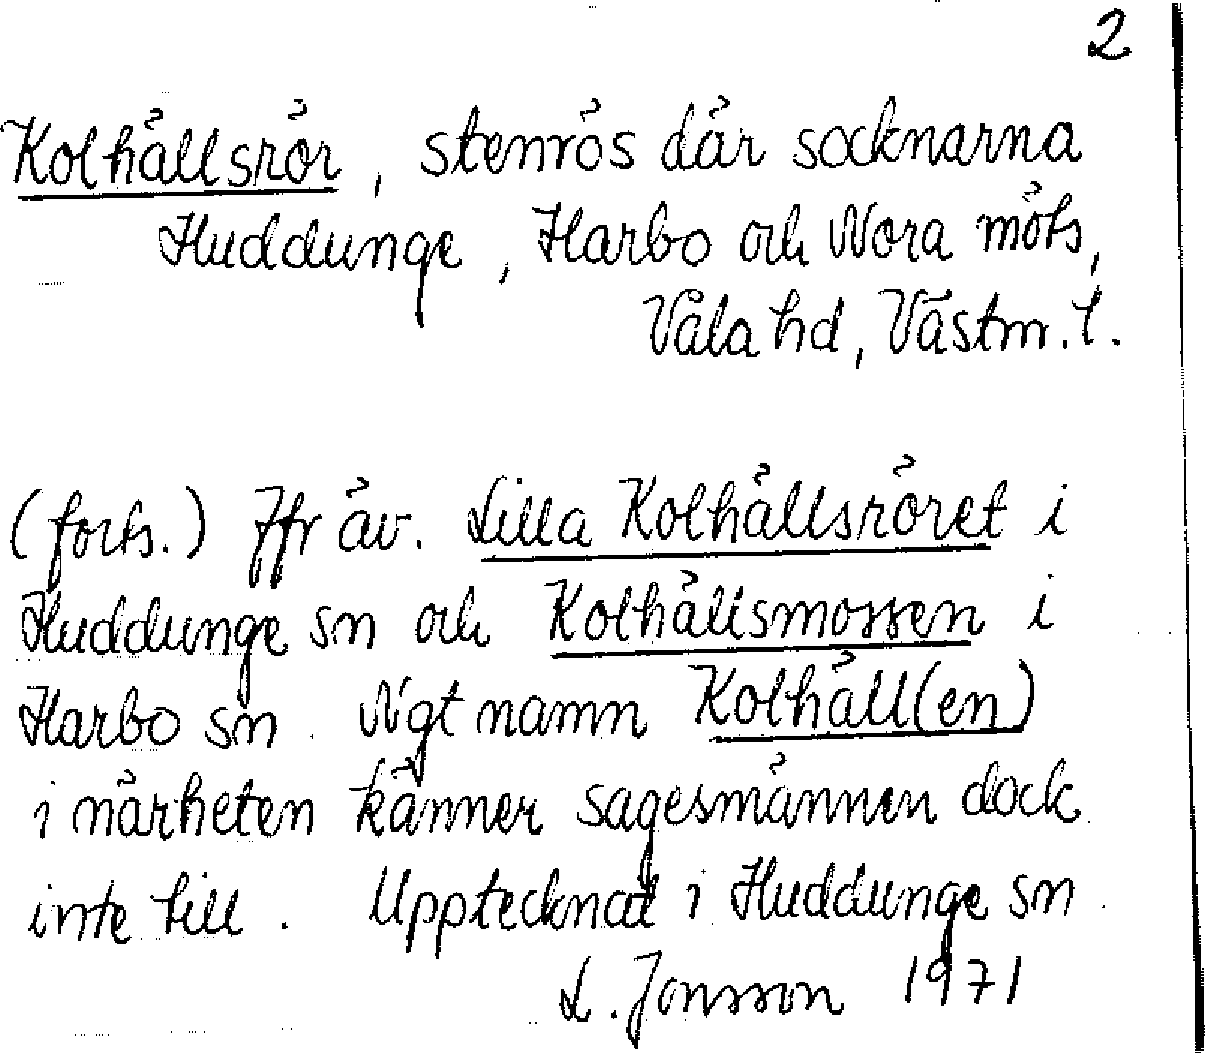 2
Kolhällsrör, stenrös där socknarna
Huddunge, Harbo och Nora möts,
Våla hd, Västm. l.
(forts.) Jfr äv. Lilla Kolhällsröret i
Huddunge sn och Kolhällsmossen i
Harbo sn. Ngt namn Kolhäll(en)
i närheten känner sagesmännen dock
inte till. Upptecknat i Huddunge sn
L. Jonsson 1971